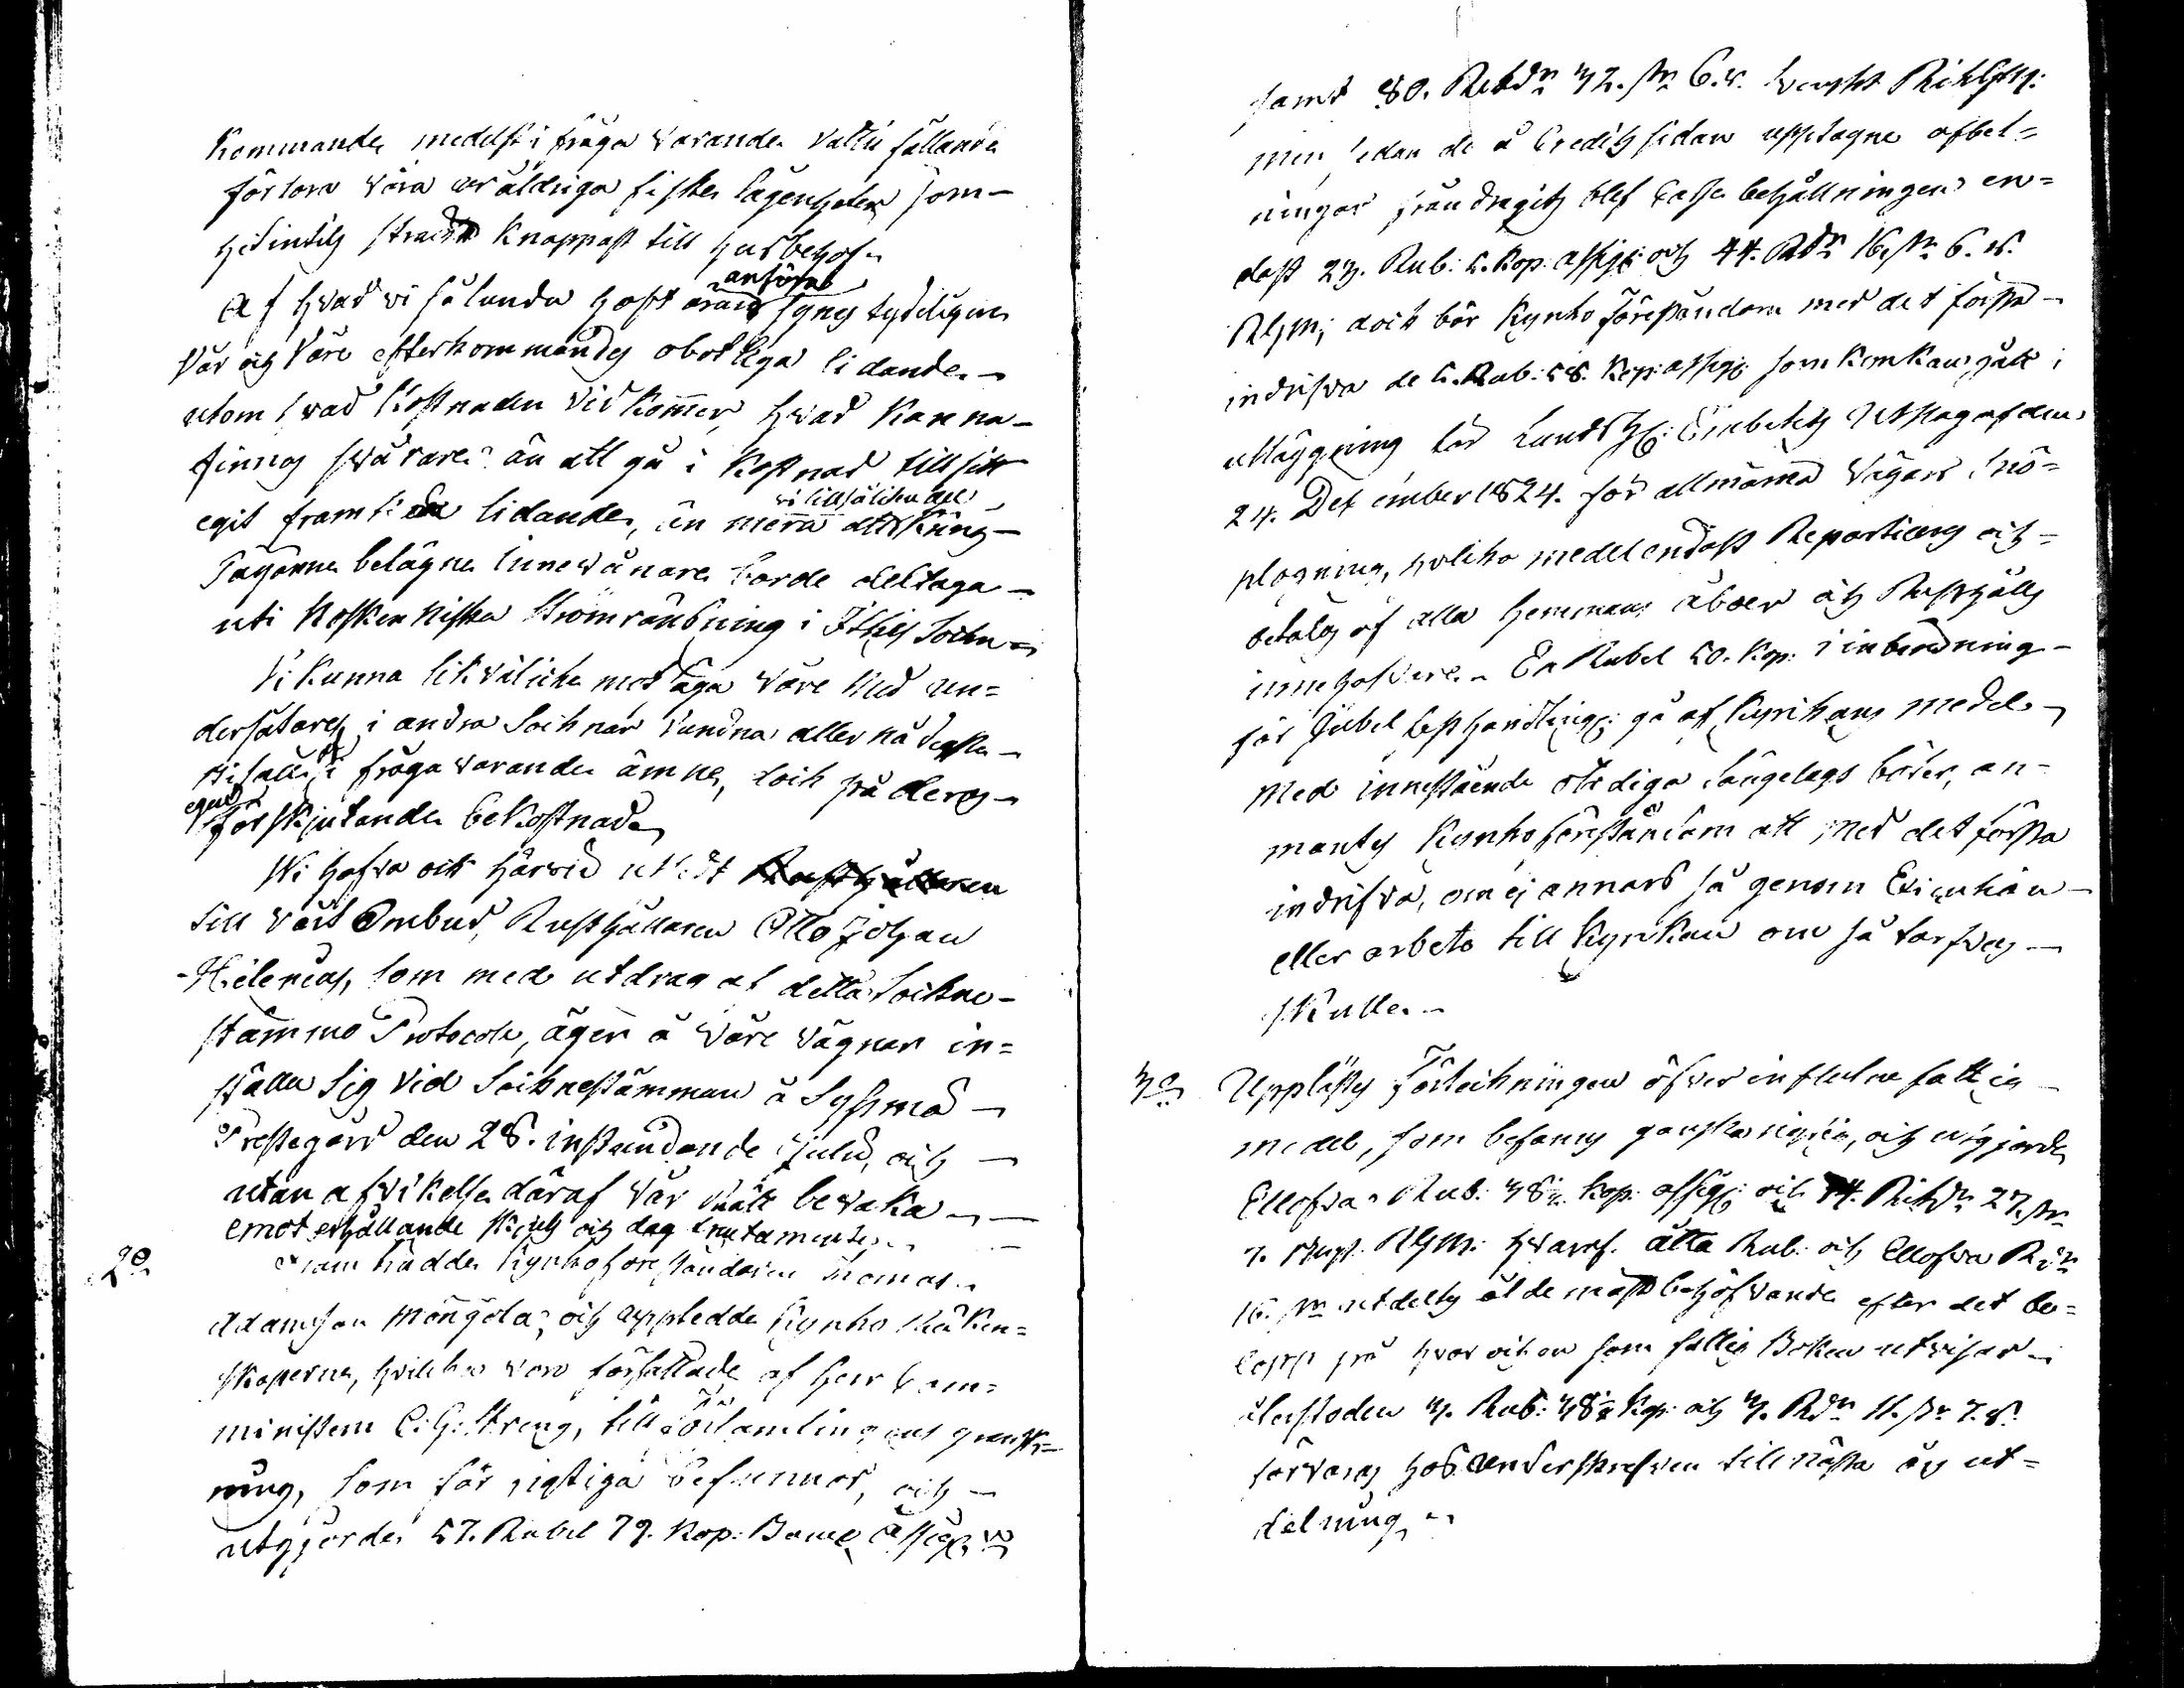 kommande medelst i fråga varande vattu fällande
förlora våra uråldriga fiske lägenheter som
hitintils sträckt knappast till husbehof.
Af hvad vi sålunda haft äran anföra synes tydeligen
vår och våre efterkommandes obotliga lidande
utom hvad kostnaden vidkommer, hvad kan na
finnas svårare än att gå i kostnad till sitt
egit framtida lidande, än mera
belägne innevånare borde deltaga
uti Koskenniska Strömränsning i Ithis Sockn
Vi kunna likväl icke motsäga våre Med un=
dersåtares i andra Socknar vundna aller nådigste
bifall i fråga varande ämne, dock på deras
egna förskjutande bekostnad
Vi hafva ock härvid utsedt Rusthållaren
till vårt Ombud, Rusthållaren Otto Johan
Helenius, som med utdrag af detta Sockne-
stämmo Protocoll, äger å våre vägnar in=
ställa sig vid Socknestämman å Sysmä
Prestegård den 28. instundande Julii, och
utan afvikelse däraf vår rätt bevaka
emot erhållande skjuts och dag tractamente.
2o Framträdde Kyrkoföreståndaren Thomas
Adamsson Möngölä, och uppledde Kyrko Räken=
skaperne, hvilka voro författade af Herr Com=
ministern C. G. Streng, till Församlingens gransk=
ning, som för rigtiga befunnos, och
utgjorde 57. Rubel 79. Kop: Banco Assign:
samt 80. Rbdr 32. sr 6. r. Svenskt Riksgs:
mt, sedan de å Credit sidan upptagne afbet=
ningar fråndragits blef Cassa behållningen en=
dast 23. Rub: 5. Kop: assign: och 44. Rdr 16 sr 6. r.
Rgm; dock bör Kyrko Föreståndaren med det första
indrifva de 5. Rub: 58. Kop: assign: som Kyrkan gått i
utläggning för Lands H: Embetets Utslag af den
24. December 1824. för allmänna vägars snö=
plogning, hvilka medel endast Reparticeras och
betalas af alla Hemmans åboer och Rusthålls
innehafvare. En Rubel 50. Kop: i inbindning
för Jubel fest handlingar: gå af Kyrkans medel
Med innestående otidiga Sängelags böter, an=
mantes Kyrkoföreståndaren att med det första
indrifva, om ej annars så genom Execution
eller arbete till Kyrkan om så tarfvas
skulle.
3o Upplästes Förteckningen öfver influtne fattig
medel, som befans ganska rigtig, och utgjorde
Ellofva Rub: 38½ Kop: assign: och 14. Rikdr 27. sr
7. Rgm: hvaraf åtta Rub: och Ellofva Rdr
16. sr utdeltes åt de mäst behöfvande efter det be=
lopp på hvar och en som fattig Boken utvisar.
återstoden 3. Rub: 38½ Kop: och 3. Rdr 11. sr 7. r.
förvaras hos underskrefven till nästa års ut=
delning.